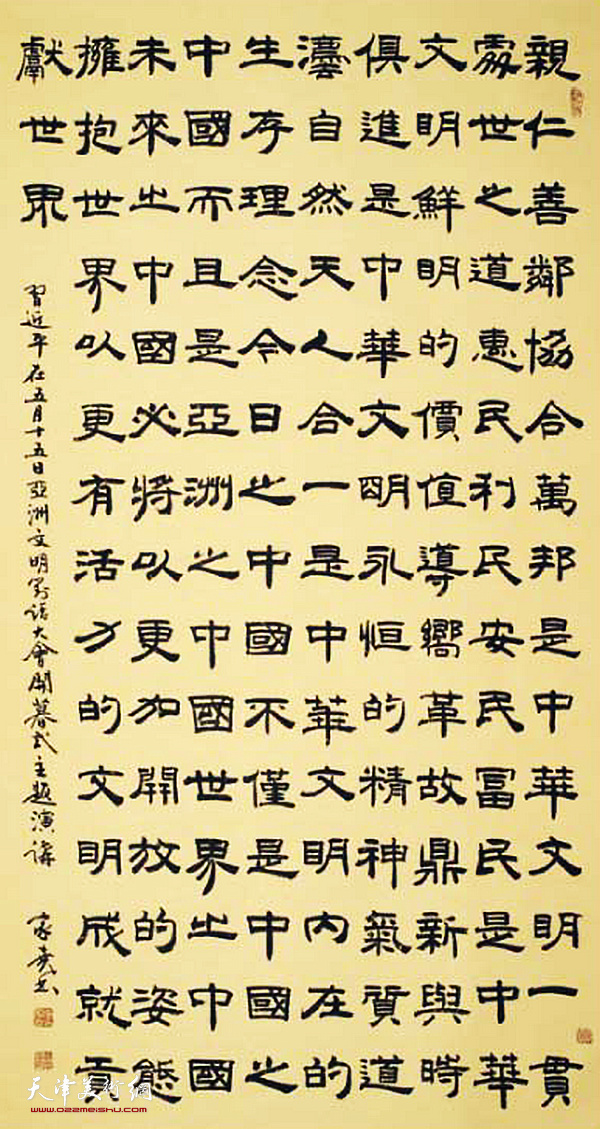 親仁善鄰協合萬邦是中華文明一貫
處世之道惠民利民安民富民是中華
文明鮮明的價值導嚮革故鼎新與時
俱進是中華文明永恒的精神氣質道
灋自然天人合一是中華文明内在的
生存理念今日之中國不僅是中國之
中國而且是亞洲之中國世界之中國
未來之中國必將以更加開放的姿態
擁抱世界以更有活力的文明成就貢
獻世界
習近平在五月十五日亞洲文明對話大會開幕式主題演講
家堯書
天津美術網
www.022meishu.com